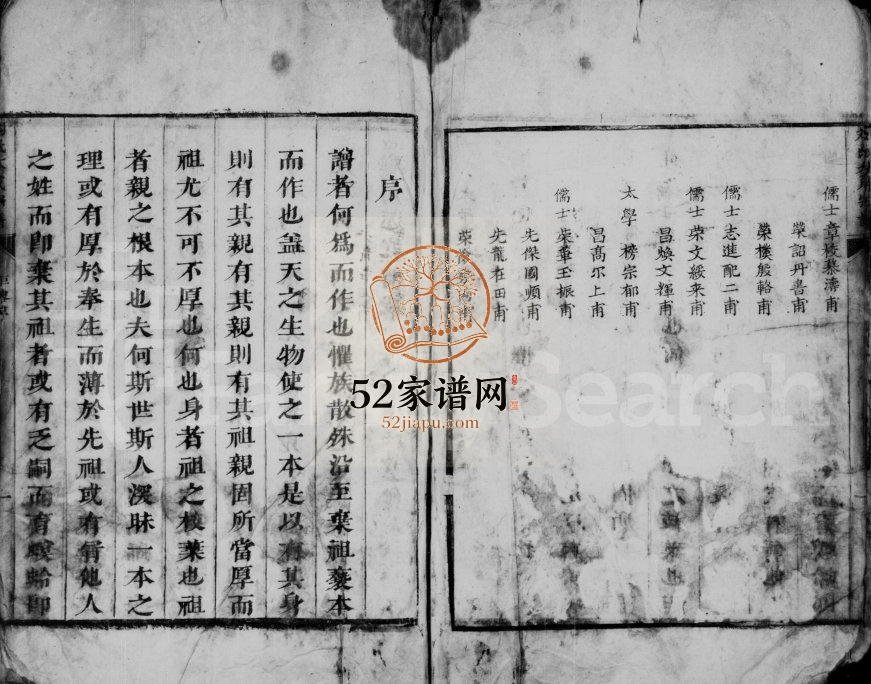 儒士章稜慕濤甫
榮詔丹書甫
榮樸殷輅甫
儒士志進配二甫
儒士榮文綏來甫
昌煥文輝甫
太學 榜宗郁甫
昌高尔上甫
儒士榮華玉振甫
先傑國順甫
先龍在田甫
序
譜者何爲而作也懼族散殊沿至棄祖褻本
而作也盖天之生物使之一本是以有其身
則有其親有其親則有其祖親固所當厚而
祖尤不可不厚也何也身者祖之枝葉也祖
者親之根本也夫何斯世斯人深昧一本之
理或有厚於奉生而薄於先祖或有冒他人
之姓而卽棄其祖者或有乏嗣而育螟蛉卽
52家谱网
52jiapu.com
Search